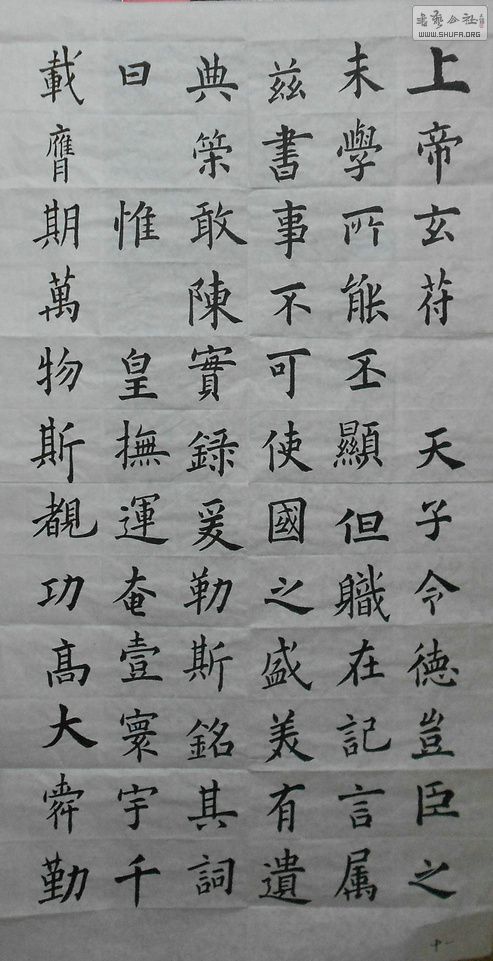 上帝玄符 天子令德豈臣之
末學所能丕顯但職在記言属
茲書事不可使國之盛美有遺
典策敢陳實錄爰勒斯銘其詞
曰 惟 皇撫運奄壹寰宇千
載膺期萬物斯覩功高大舜勤
十一
書藝公社
WWW.SHUFA.ORG